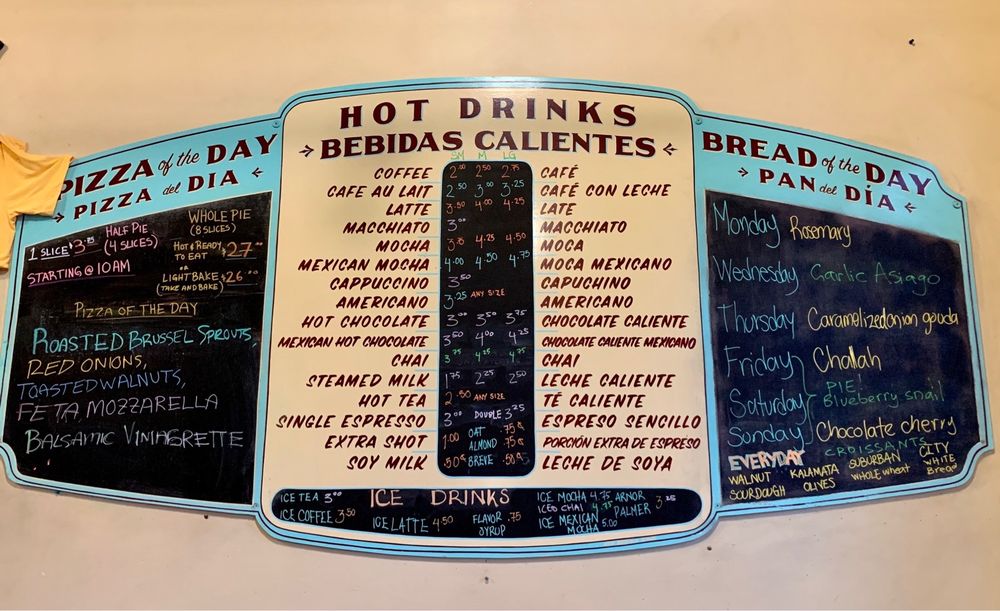 PIZZA of the DAY
PIZZA del DIA
1 SLICE $3.75
HALF PIE
(4 SLICES)
STARTING @ 10AM
WHOLE PIE
(8 SLICES)
HOT & READY
TO EAT
$27
OR
LIGHT BAKE $26
(TAKE AND BAKE)
PIZZA OF THE DAY
ROASTED BRUSSEL SPROUTS,
RED ONIONS,
TOASTED WALNUTS,
FETA MOZZARELLA
BALSAMIC VINIAGRETTE
HOT DRINKS
BEBIDAS CALIENTES
SM M LG
COFFEE 2.00 2.50 2.75 CAFÉ
CAFE AU LAIT 2.50 3.00 3.25 CAFÉ CON LECHE
LATTE 3.50 4.00 4.25 LATE
MACCHIATO 3.00 MACCHIATO
MOCHA 3.75 4.25 4.50 MOCA
MEXICAN MOCHA 4.00 4.50 4.75 MOCA MEXICANO
CAPPUCCINO 3.50 CAPUCHINO
AMERICANO 3.25 ANY SIZE AMERICANO
HOT CHOCOLATE 3.00 3.50 3.75 CHOCOLATE CALIENTE
MEXICAN HOT CHOCOLATE 3.50 4.00 4.25 CHOCOLATE CALIENTE MEXICANO
CHAI 3.75 4.25 4.75 CHAI
STEAMED MILK 1.75 2.25 2.50 LECHE CALIENTE
HOT TEA 2.50 ANY SIZE TÉ CALIENTE
SINGLE ESPRESSO 3.00 DOUBLE 3.25 ESPRESO SENCILLO
EXTRA SHOT 1.00 OAT .75¢ ALMOND .75¢ PORCIÓN EXTRA DE ESPRESO
SOY MILK .50¢ BREVE .50¢ LECHE DE SOYA
ICE DRINKS
ICE TEA 3.00
ICE COFFEE 3.50
ICE LATTE 4.50
FLAVOR .75
SYRUP
ICE MOCHA 4.75
ICED CHAI 4.75
ICE MEXICAN
MOCHA 5.00
ARNOR
PALMER 3.25
BREAD of the DAY
PAN del DÍA
Monday Rosemary
Wednesday Garlic Asiago
Thursday Caramelized onion gouda
Friday Challah
Saturday PIE!
Blueberry snail
Sunday Chocolate cherry
CROISSANTS
EVERYDAY
WALNUT
SOURDOUGH
KALAMATA
OLIVES
SUBURBAN
WHOLE wheat
CITY
WHITE
Bread